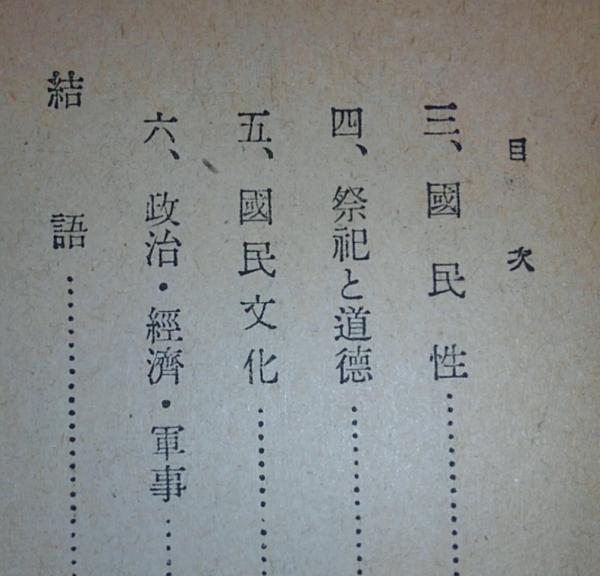 目次
三、國民性
四、祭祀と道德
五、國民文化
六、政治・經濟・軍事
結語